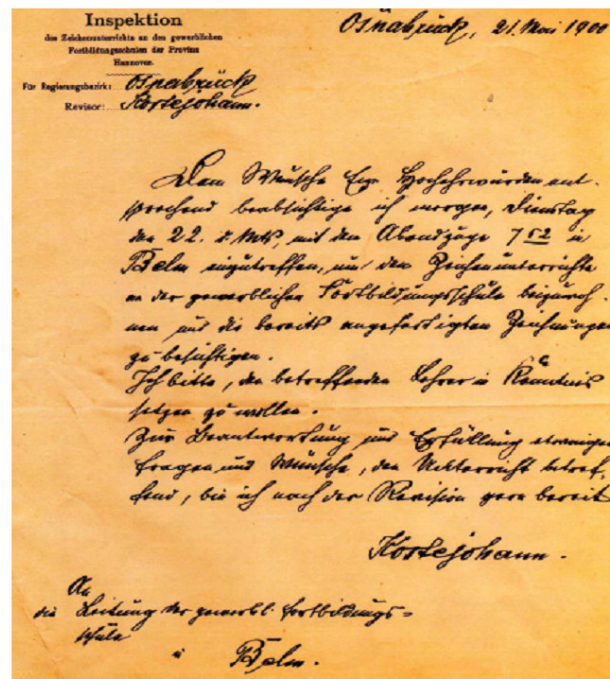 Inspektion
des Zeichenunterrichts an den gewerblichen
Fortbildungsschulen der Provinz
Hannover.
Für Regierungsbezirk: Osnabrück
Revisor: Kostejohann.
Osnabrück, 21. Mai 1900
Dem Wunsche Ew. Hochehrwürden ent-
sprechend beabsichtige ich morgen, Dienstag
den 22. d. Mts, mit dem Abendzuge 7 52 in
Belm einzutreffen, um dem Zeichenunterrichte
an der gewerblichen Fortbildungsschule beizuwoh-
nen und die bereits angefertigten Zeichnungen
zu besichtigen.
Ich bitte, den betreffenden Lehrer in Kenntnis
setzen zu wollen.
Zur Beantwortung und Erfüllung etwaiger
Fragen und Wünsche, den Unterricht betref-
fend, bin ich nach der Revision gern bereit
Kostejohann.
An
die Leitung der gewerbl. Fortbildungs=
schule
in Belm.